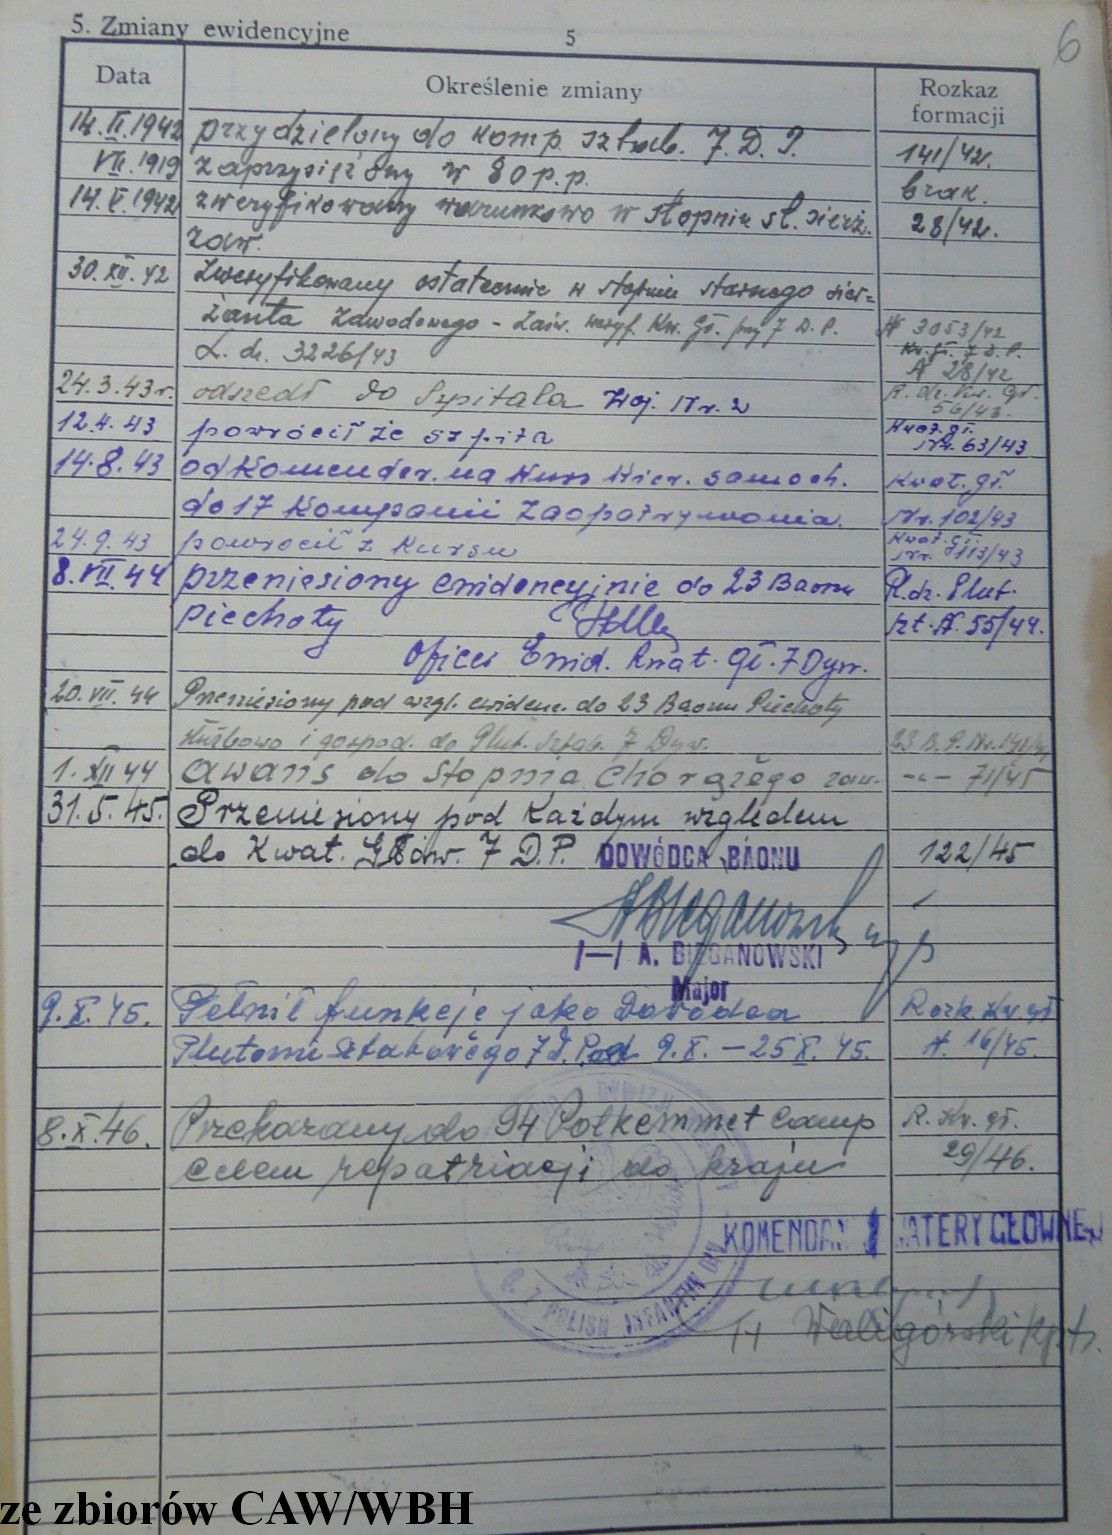 5. Zmiany ewidencyjne
5
6
Data Określenie zmiany Rozkaz formacji
14.II.1942 przydzielony do komp. sztab. 7. D. P. 141/42.
VII.1919 zaprzysiężony w 80 p.p. brak.
14.V.1942 zweryfikowany warunkowo w stopniu st. sierż. 28/42.
zaw.
30.XII.42 Zweryfikowany ostatecznie w stopniu starszego sier=
żanta zawodowego - Zaśw. weryf. Kw. Gł. przy 7 D. P. N 3053/42
L. dz. 3226/43 Kw. gł. 7 D.P.
N 28/42
24.3.43 r. odszedł do Szpitala Woj. Nr. 2 R. dz. Kw. Gł. 56/43.
12.4.43 powrócił ze szpita Kwat. gł. Nr. 63/43
14.8.43 odkomender. na kurs kier. samoch. Kwat. gł.
do 17 Kompanii Zaopatrywania. Nr. 102/43
24.9.43 powrócił z kursu Kwat. Gł. Nr. 113/43
8.VII.44 przeniesiony ewidencyjnie do 23 Baonu R.dz. Plut.
piechoty szt. N. 55/44.
Oficer Ewid. Kwat. Gł. 7 Dyw.
20.VII.44 Przeniesiony pod wzgl. ewidenc. do 23 Baonu Piechoty
służbowo i gospod. do Plut. Sztab. 7 Dyw. 23 B.P. Nr.
1.XII 44 awans do stopnia Chorążego zaw. -"- 71/45
31.5.45. Przeniesiony pod każdym względem
do Kwat. Głów. 7 D.P. 122/45
DOWÓDCA BAONU
/—/ A. BIEGANOWSKI
Major
9.X.45. Pełnił funkcję jako Dowódca Rozk. Kw. gł
Plutonu Sztabowego 7 D.P. od 9.X. – 25 X. 45. N. 16/45.
8.X.46. Przekazany do 94 Polkemmet Camp R. Kw. gł.
celem repatriacji do kraju 29/46.
KOMENDANT KWATERY GŁÓWNEJ
Waligórski Kpt.
7 POLISH INFANTRY DIV
ze zbiorów CAW/WBH